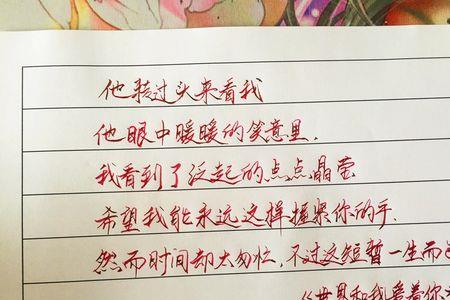 他转过头来看我
他眼中暖暖的笑意里.
我看到了泛起的点点晶莹
希望我能永远这样握紧你的手.
然而时间却太匆忙,不过这短暂一生而已
《世界和我爱着你